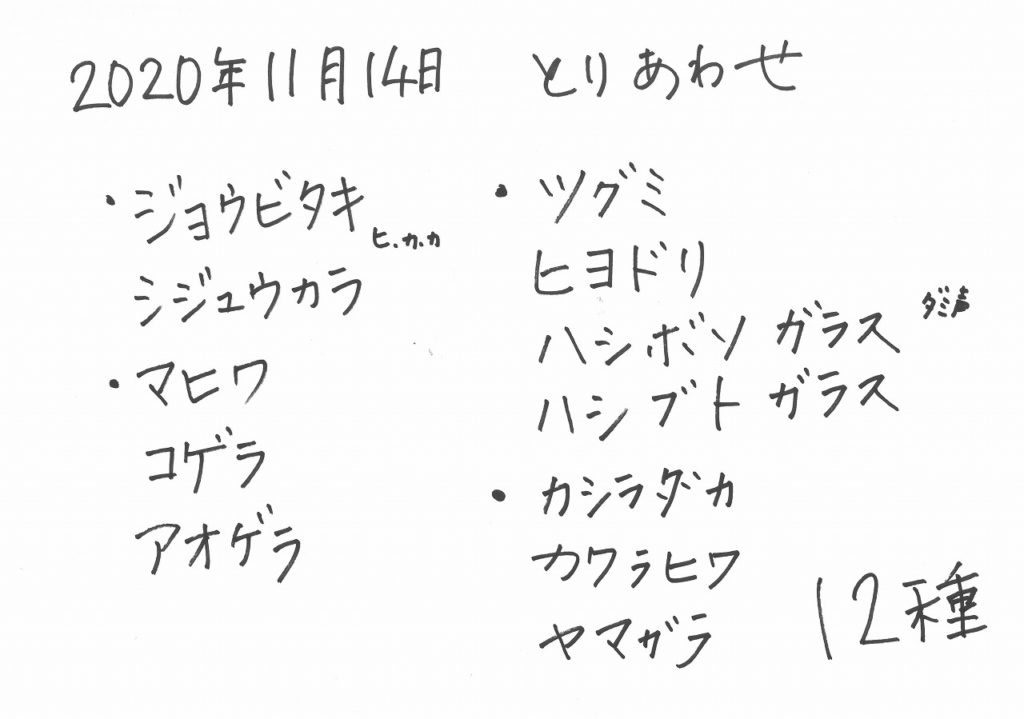 2020年11月14日 とりあわせ
・ジョウビタキ ヒ.カ.カ
シジュウカラ
・マヒワ
コゲラ
アオゲラ
・ツグミ
ヒヨドリ
ハシボソガラス ダミ声
ハシブトガラス
・カシラダカ
カワラヒワ
ヤマガラ
12種